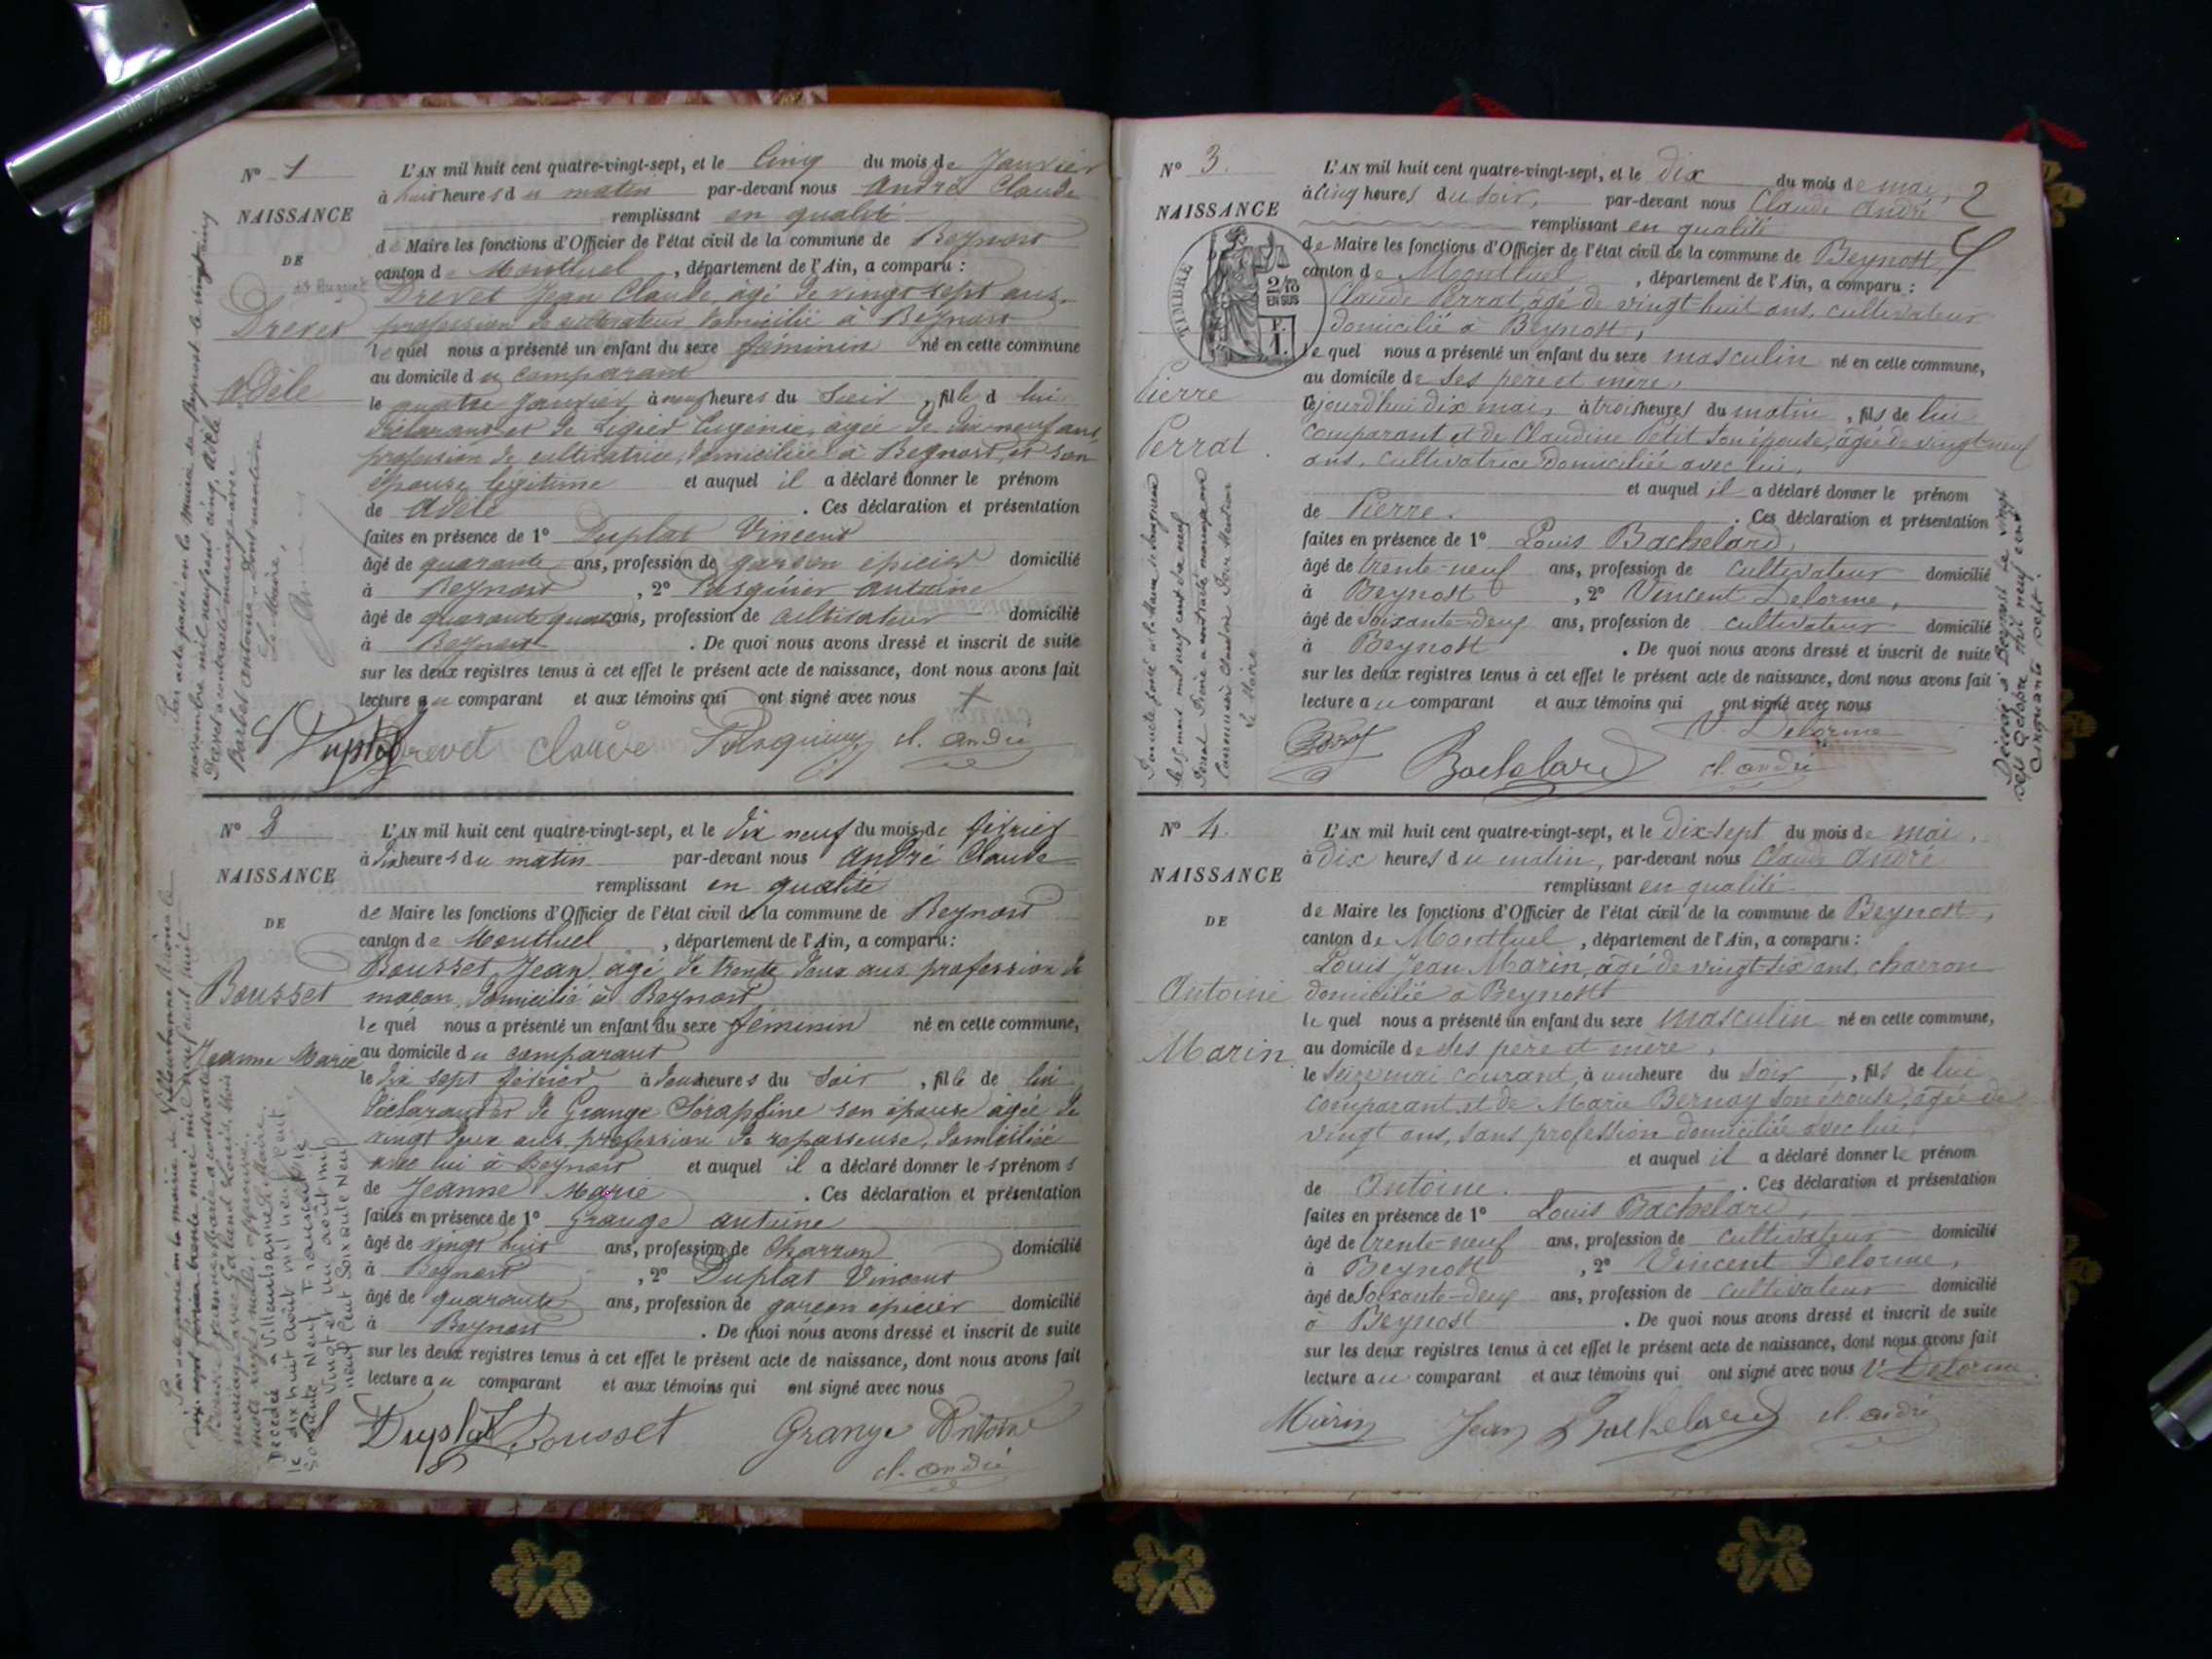 N° 1
NAISSANCE
DE
Drevet
Adèle
L'AN mil huit cent quatre-vingt-sept, et le Cinq du mois de Janvier
à huit heures du matin par-devant nous André Claude
remplissant en qualité
de Maire les fonctions d'Officier de l'état civil de la commune de Beynost
canton de Montluel, département de l'Ain, a comparu :
Drevet Jean Claude, âgé de vingt sept ans,
profession de cultivateur domicilié à Beynost
lequel nous a présenté un enfant du sexe féminin né en cette commune
au domicile du comparant
le quatre Janvier à neuf heures du soir, fille d lui
déclarant et de Legier Eugénie, âgée de dix-neuf ans,
profession de cultivatrice, domiciliée à Beynost, et son
épouse légitime et auquel il a déclaré donner le prénom
de Adèle. Ces déclaration et présentation
faites en présence de 1° Duplat Vincent
âgé de quarante ans, profession de garçon épicier domicilié
à Beynost, 2° Pasquier Antoine
âgé de quarante quatre ans, profession de cultivateur domicilié
à Beynost. De quoi nous avons dressé et inscrit de suite
sur les deux registres tenus à cet effet le présent acte de naissance, dont nous avons fait
lecture au comparant et aux témoins qui ont signé avec nous
Duplat Drevet Claude Pasquier cl. andré
Par acte passé en la Mairie de Beynost le vingt cinq
novembre mil neuf cent cinq, Adèle
Drevet a contracté mariage avec
Barbet Antoine. Dont mention
Le Maire,
N° 2
NAISSANCE
DE
Bousset
Jeanne Marie
L'AN mil huit cent quatre-vingt-sept, et le dix neuf du mois de février
à dix heures du matin par-devant nous André Claude
remplissant en qualité
de Maire les fonctions d'Officier de l'état civil de la commune de Beynost
canton de Montluel, département de l'Ain, a comparu :
Bousset Jean, âgé de trente deux ans profession de
maçon, domicilié à Beynost
lequel nous a présenté un enfant du sexe féminin né en cette commune,
au domicile du comparant
le dix sept février à deux heures du soir, fille de lui
déclarant et de Grange Séraphine son épouse âgée de
vingt deux ans profession de repasseuse, domiciliée
avec lui à Beynost et auquel il a déclaré donner les prénoms
de Jeanne Marie. Ces déclaration et présentation
faites en présence de 1° Grange antoine
âgé de vingt huit ans, profession de Charron domicilié
à Beynost, 2° Duplat Vincent
âgé de quarante ans, profession de garçon épicier domicilié
à Beynost. De quoi nous avons dressé et inscrit de suite
sur les deux registres tenus à cet effet le présent acte de naissance, dont nous avons fait
lecture au comparant et aux témoins qui ont signé avec nous
Duplat Bousset Grange Antoine
cl. andré
Décédée à Villeurbanne
le dix huit Août mil neuf cent
soixante Neuf. Transcrit le
Vingt et un août mil
neuf cent Soixante Neuf
N° 3.
NAISSANCE
TIMBRE
2/10
EN SUS
F.
1.
Pierre
Perrat.
2
L'AN mil huit cent quatre-vingt-sept, et le dix du mois de mai,
à cinq heures du soir, par-devant nous Claude André
remplissant en qualité
de Maire les fonctions d'Officier de l'état civil de la commune de Beynost,
canton de Montluel, département de l'Ain, a comparu :
Claude Perrat, âgé de vingt-huit ans, cultivateur
domicilié à Beynost,
lequel nous a présenté un enfant du sexe masculin né en cette commune,
au domicile de ses père et mère,
Cejourd'hui dix mai, à trois heures du matin, fils de lui
comparant et de Claudine Petit son épouse, âgée de vingt-neuf
ans, cultivatrice domiciliée avec lui,
et auquel il a déclaré donner le prénom
de Pierre. Ces déclaration et présentation
faites en présence de 1° Louis Bachelard,
âgé de trente-neuf ans, profession de cultivateur domicilié
à Beynost, 2° Vincent Delorme,
âgé de soixante-deux ans, profession de cultivateur domicilié
à Beynost. De quoi nous avons dressé et inscrit de suite
sur les deux registres tenus à cet effet le présent acte de naissance, dont nous avons fait
lecture au comparant et aux témoins qui ont signé avec nous
V. Delorme
Bachelard cl. andré
Décédé à Beynost le vingt
six Octobre mil neuf cent
cinquante sept.
N° 4.
NAISSANCE
DE
Antoine
Marin.
L'AN mil huit cent quatre-vingt-sept, et le dix-sept du mois de mai,
à dix heures du matin, par-devant nous Claude André
remplissant en qualité
de Maire les fonctions d'Officier de l'état civil de la commune de Beynost,
canton de Montluel, département de l'Ain, a comparu :
Louis Jean Marin, âgé de vingt-six ans, charron
domicilié à Beynost
lequel nous a présenté un enfant du sexe masculin né en cette commune,
au domicile de ses père et mère,
le seize mai courant, à une heure du soir, fils de lui
comparant, et de Marie Bernay son épouse, âgée de
vingt ans, sans profession domiciliée avec lui,
et auquel il a déclaré donner le prénom
de Antoine. Ces déclaration et présentation
faites en présence de 1° Louis Bachelard,
âgé de trente-neuf ans, profession de cultivateur domicilié
à Beynost, 2° Vincent Delorme,
âgé de soixante-deux ans, profession de cultivateur domicilié
à Beynost. De quoi nous avons dressé et inscrit de suite
sur les deux registres tenus à cet effet le présent acte de naissance, dont nous avons fait
lecture au comparant et aux témoins qui ont signé avec nous V Delorme
Marin Jean Bachelard cl. andré